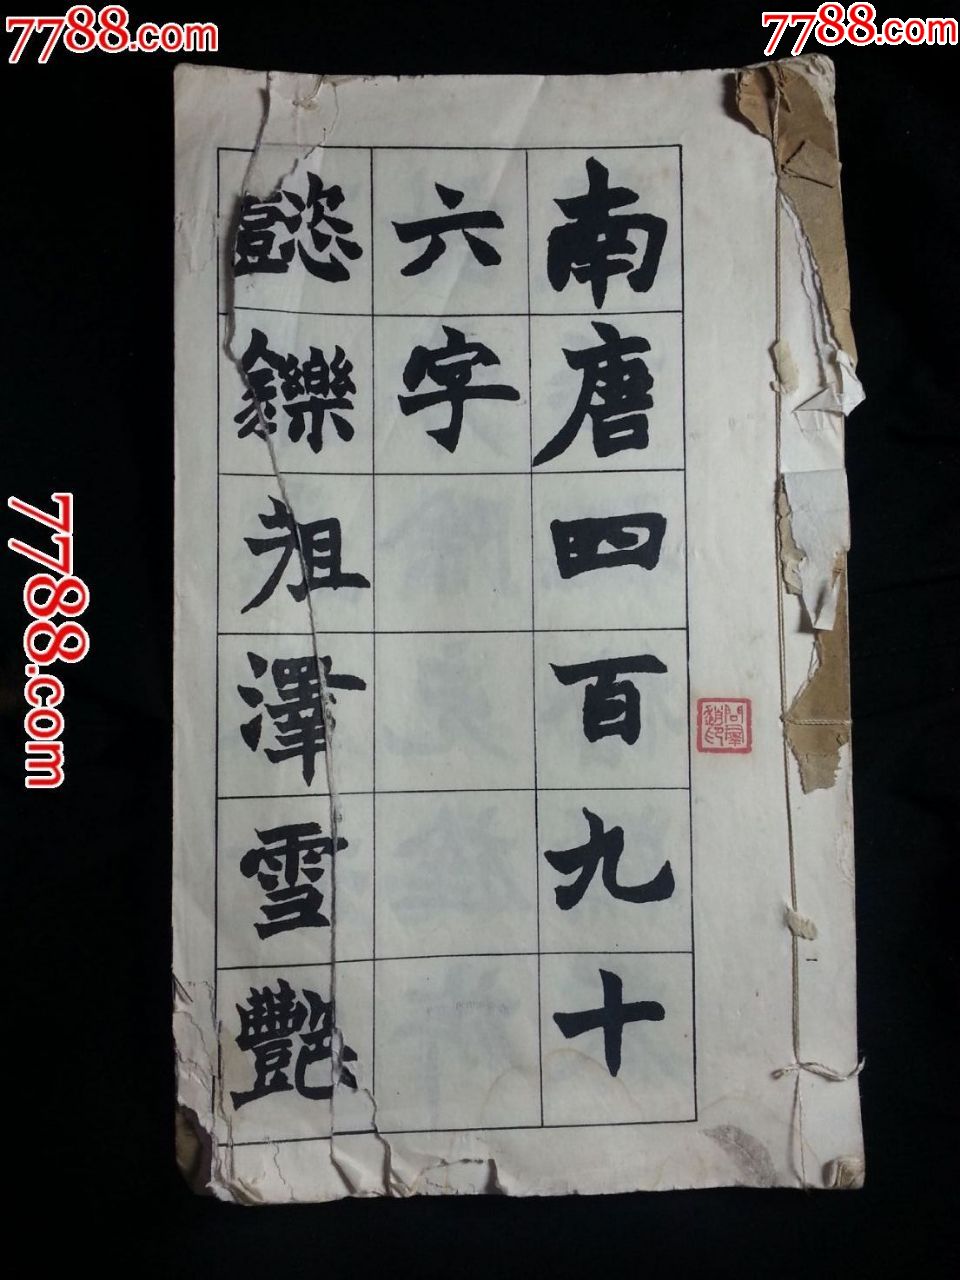 7788.com
7788.com
7788.com
南唐四百九十
六字
懿鑠祖澤雪艷
一